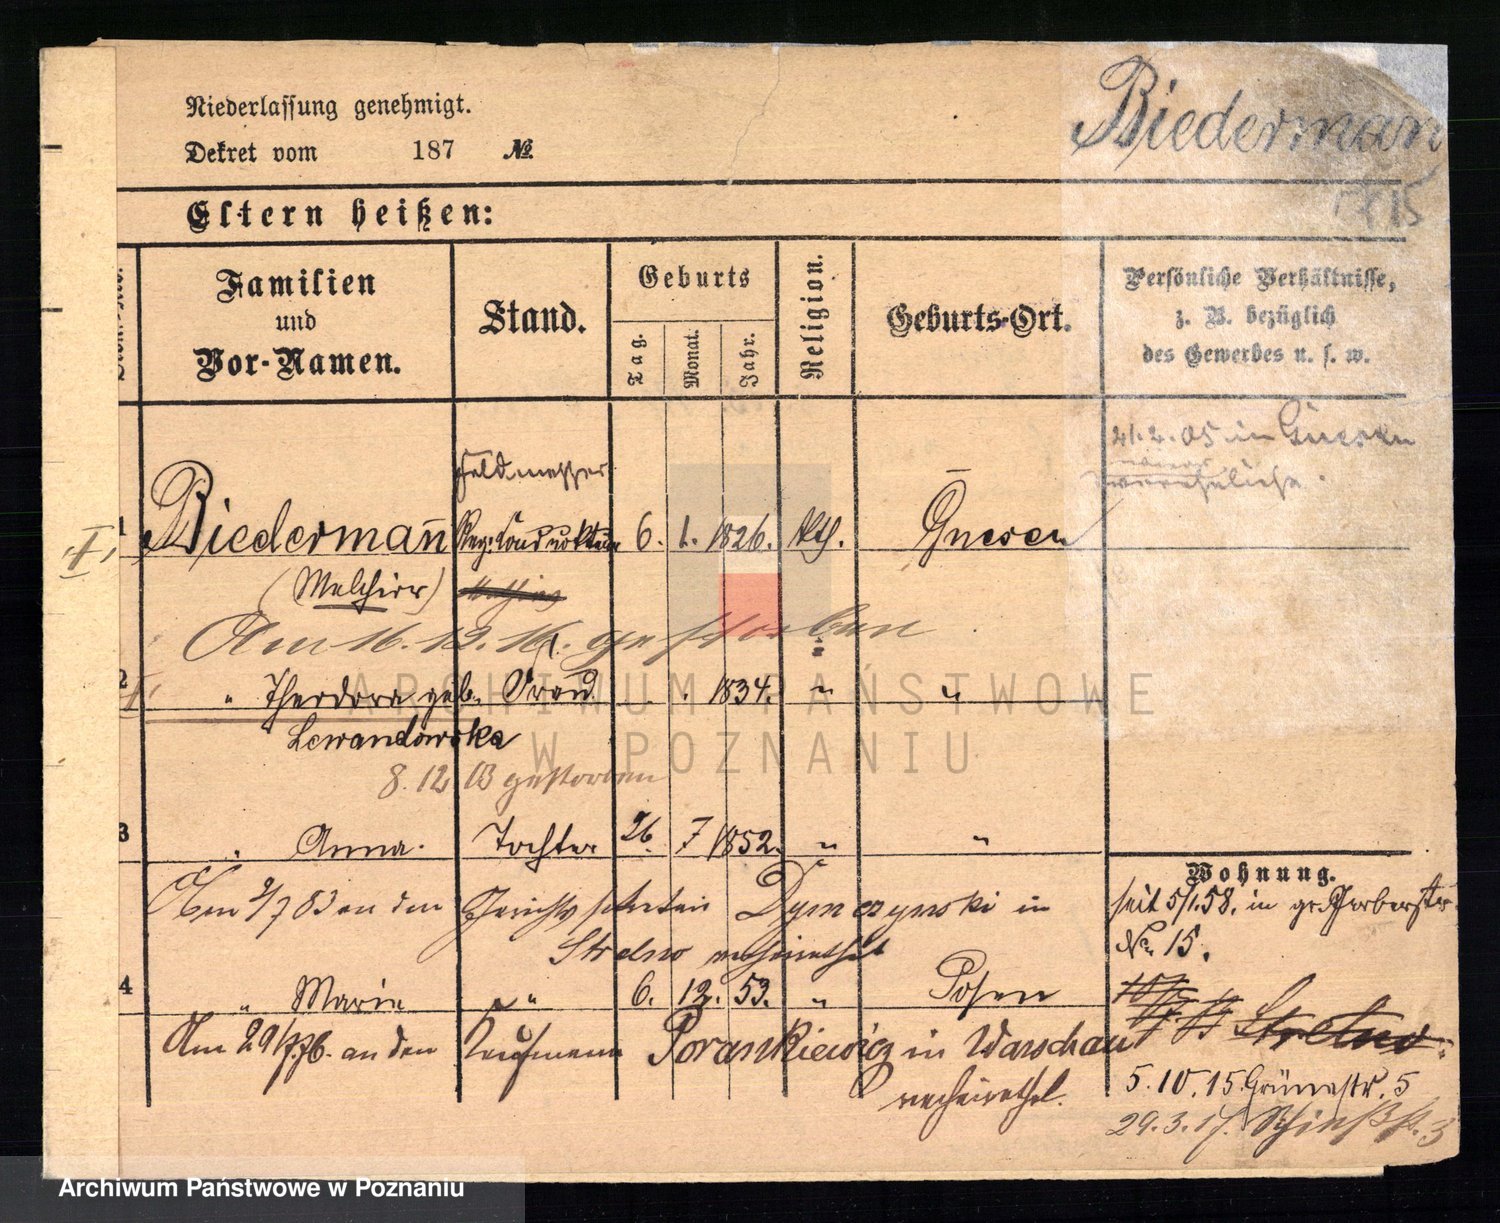 Niederlassung genehmigt.
Dekret vom 187 №
Biederman
Eltern heißen:
Familien
und
Vor-Namen.
Stand.
Geburts
Tag.
Monat.
Jahr.
Religion.
Geburts-Ort.
Persönliche Verhältnisse,
z. B. bezüglich
des Gewerbes u. s. w.
in Gnesen
Feldmesser
1 Biederman̄ 6. 1. 1826. kth. Gnesen
(Melchior)
Am 16.12.16. gestorben
2 " Theodora geb. Frau 1834. " "
Lewandowska
8.12 03 gestorben
3 Anna. Tochter 26. 7 1852. " "
Wohnung.
Am 2/7 83 an den Dymczynski in
Strelno verheirathet
seit 5/1.58. in gr. Gerberstr.
No. 15.
4 " Marie " 6. 12. 53. " Posen
Strelno
Am an den Kaufmann Porankiewicz in Warschau
verheirathet.
5.10.15. Grünestr. 5
29.3.17.
ARCHIWUM PAŃSTWOWE
W POZNANIU
Archiwum Państwowe w Poznaniu